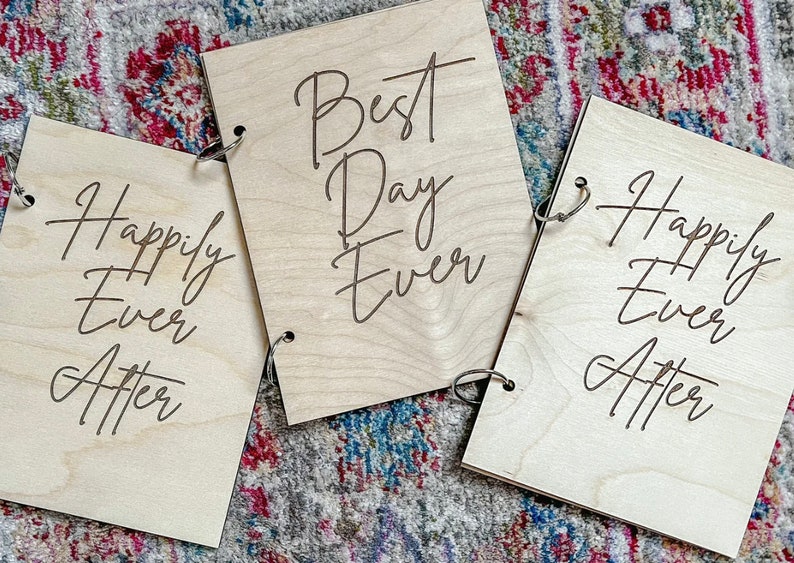 Happily
Ever
After
Best
Day
Ever
Happily
Ever
After